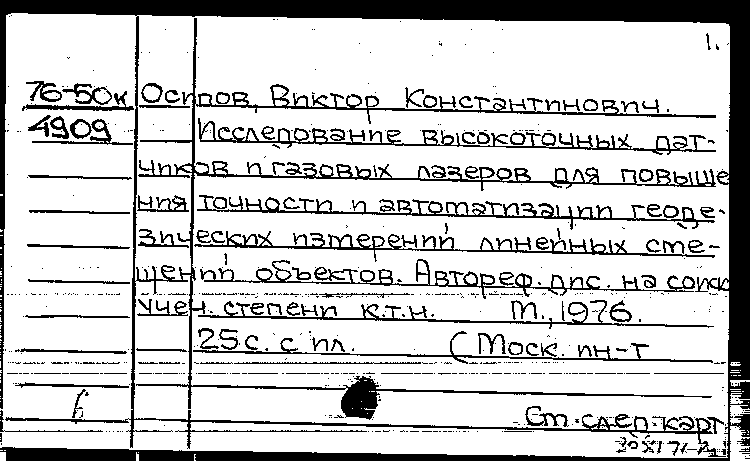 1.
76-50к Осипов, Виктор Константинович.
4909 Исследование высокоточных дат-
чиков и газовых лазеров для повыше
ния точности и автоматизации геоде-
зических измерений линейных сме-
щений объектов. Автореф. дис. на соиск
учен. степени к.т.н. М., 1976.
25 с. с ил. (Моск. ин-т
См. след. карт